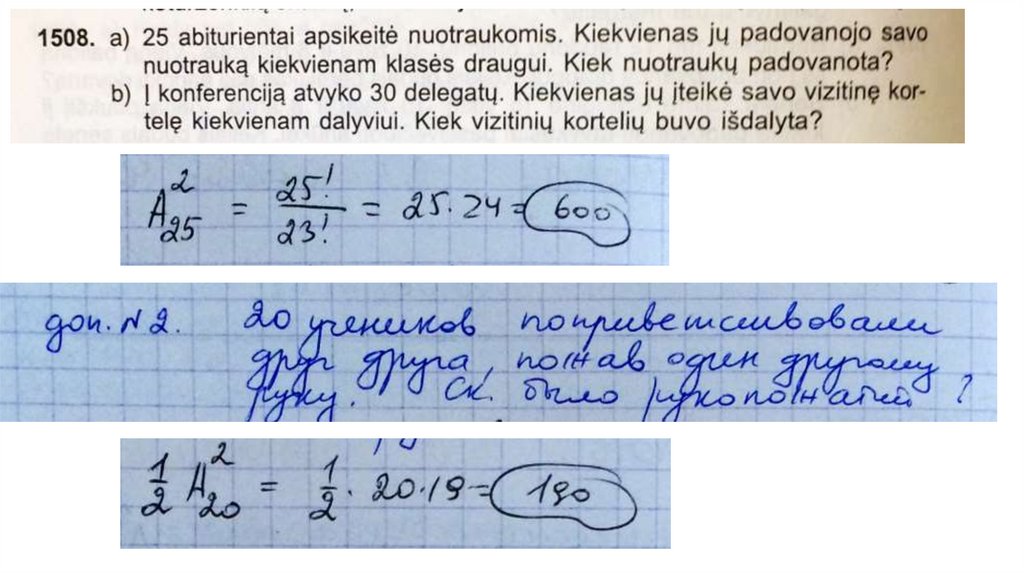 1508. a) 25 abiturientai apsikeitė nuotraukomis. Kiekvienas jų padovanojo savo
nuotrauką kiekvienam klasės draugui. Kiek nuotraukų padovanota?
b) Į konferenciją atvyko 30 delegatų. Kiekvienas jų įteikė savo vizitinę kor-
telę kiekvienam dalyviui. Kiek vizitinių kortelių buvo išdalyta?
A²₂₅ = 25!/23! = 25·24 = 600
доп. N2. 20 учеников поприветствовали
друг друга, пожав один другому
руку. Ск. было рукопожатий ?
1/2 A²₂₀ = 1/2 · 20·19 = 190